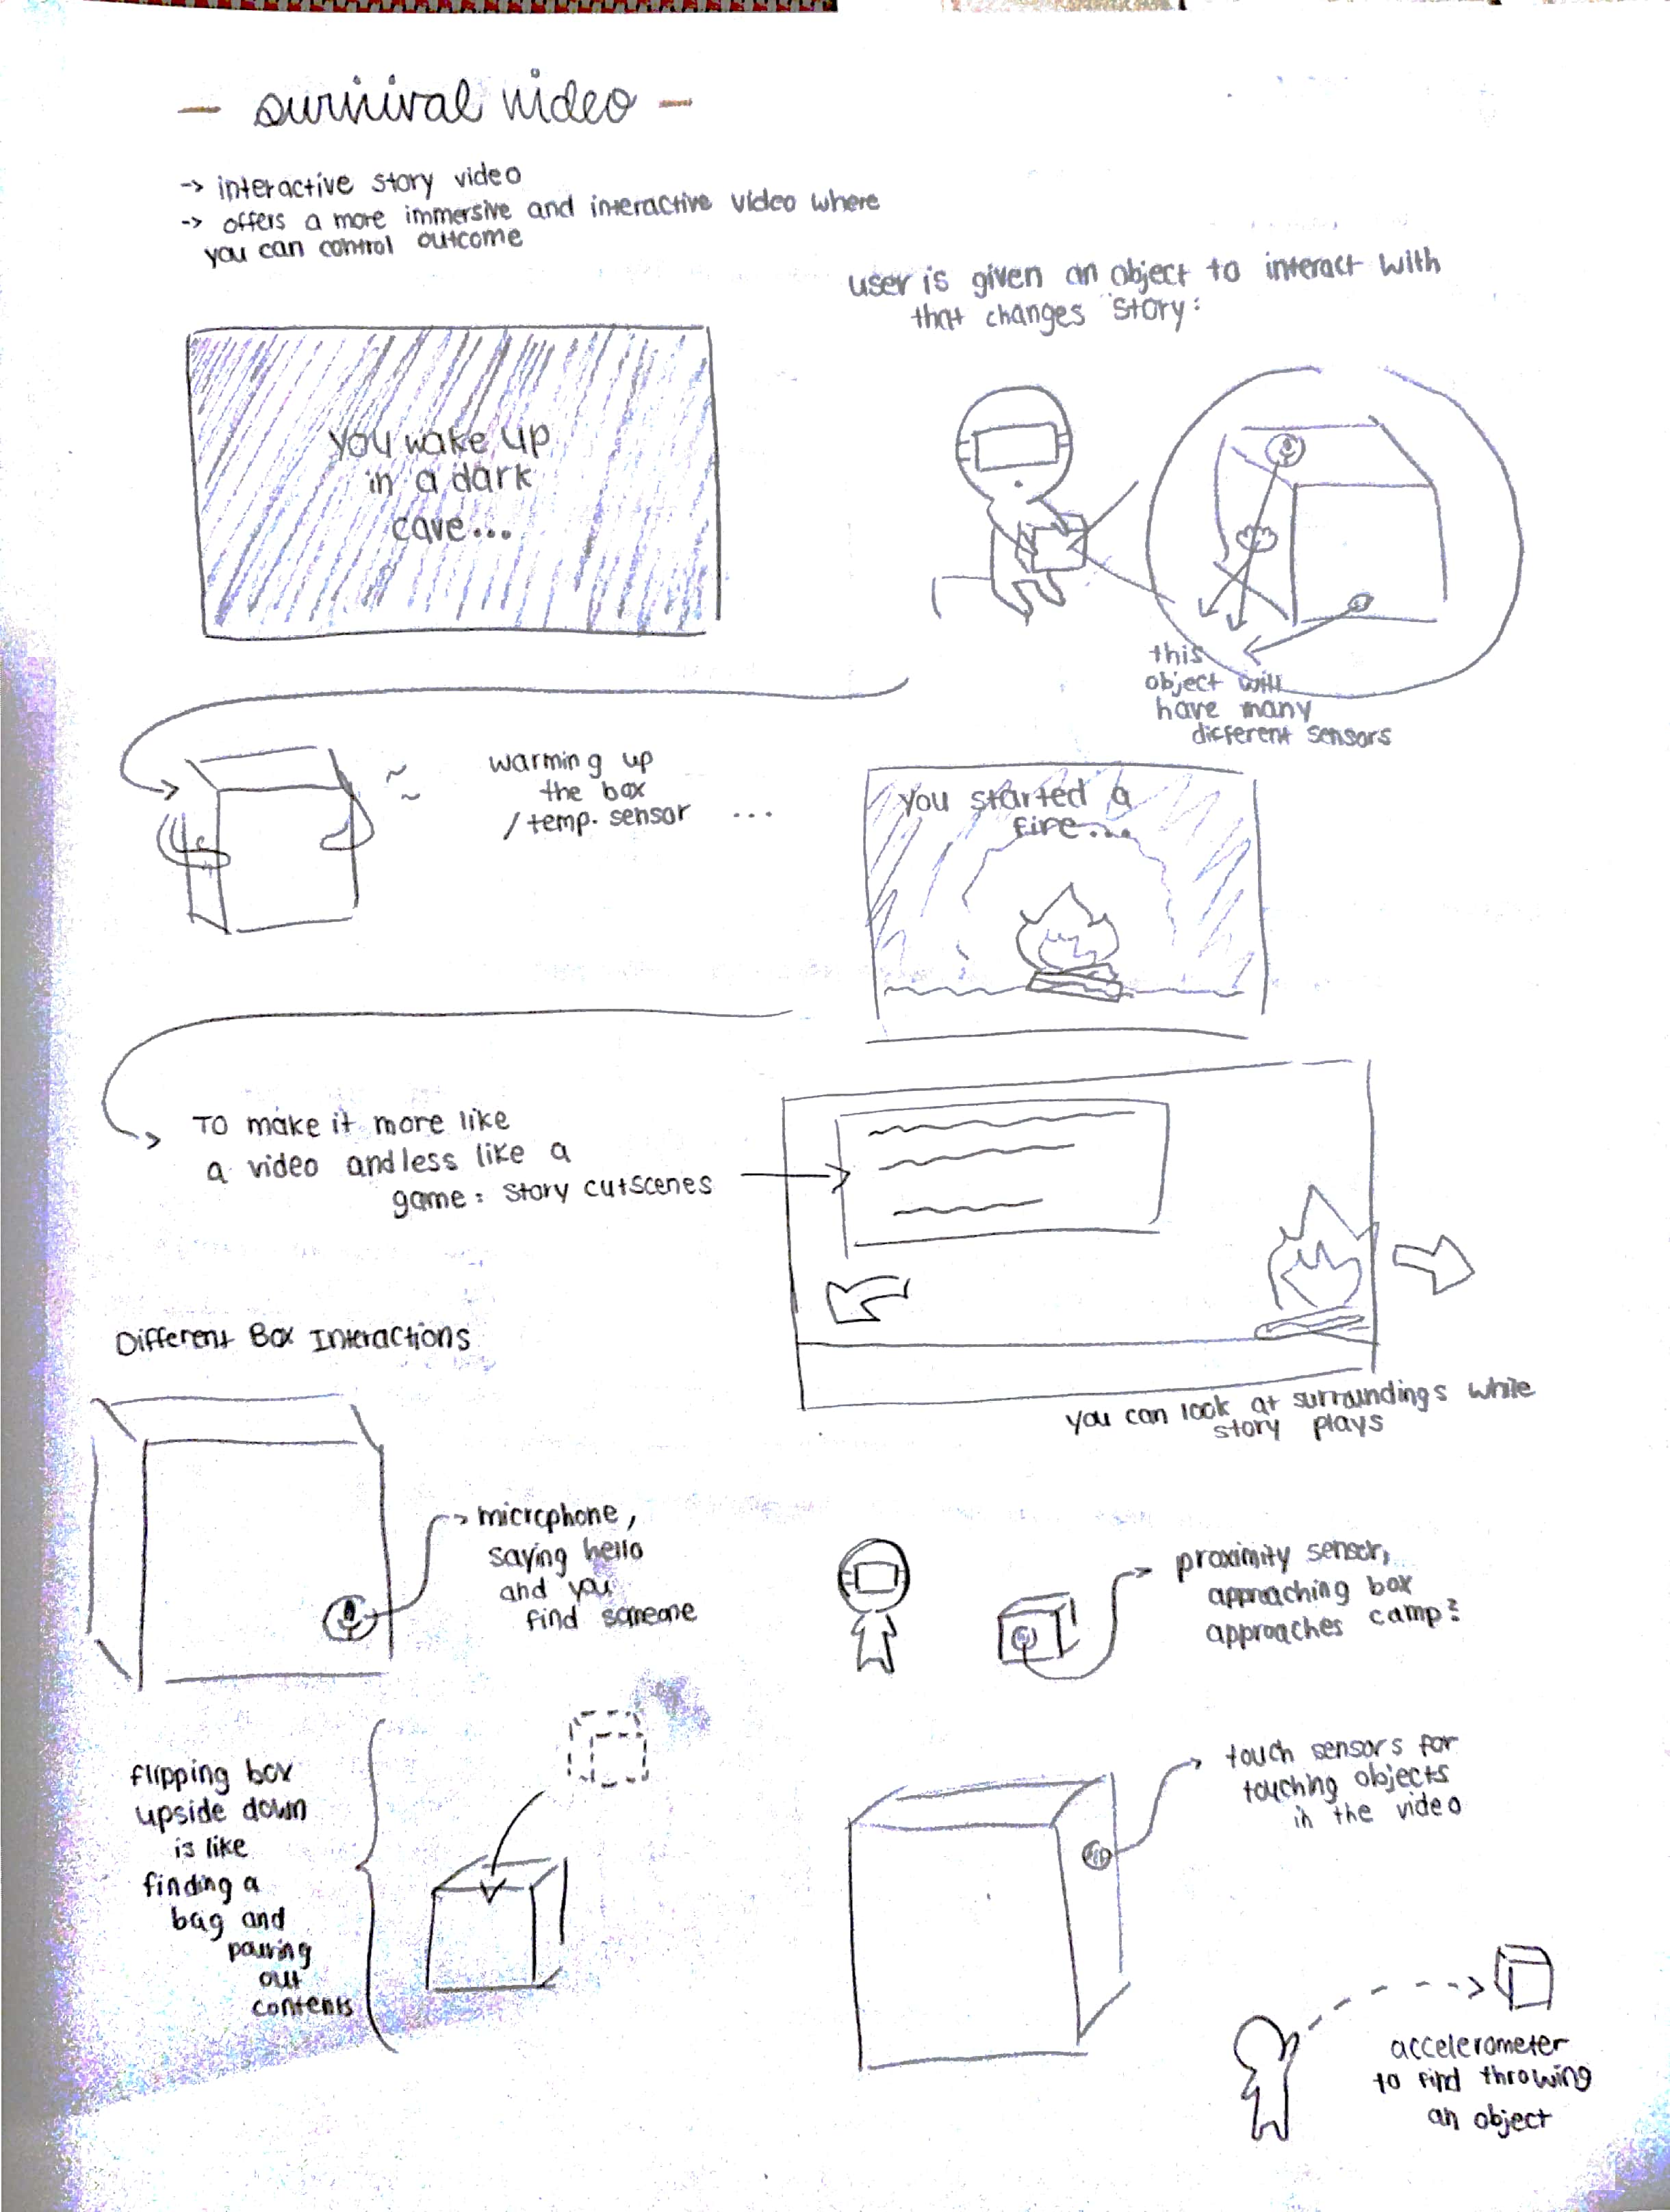 - survival video -
-> interactive story video
-> offers a more immersive and interactive video where
you can control outcome
user is given an object to interact with
that changes story:
you wake up
in a dark
cave...
this
object will
have many
different sensors
warming up
the box
/ temp. sensor ...
you started a
fire...
To make it more like
a video and less like a
game: story cutscenes
you can look at surroundings while
story plays
Different Box Interactions
microphone,
saying hello
and you
find someone
proximity sensor,
approaching box
approaches camp?
flipping box
upside down
is like
finding a
bag and
pouring
out
contents
touch sensors for
touching objects
in the video
accelerometer
to find throwing
an object